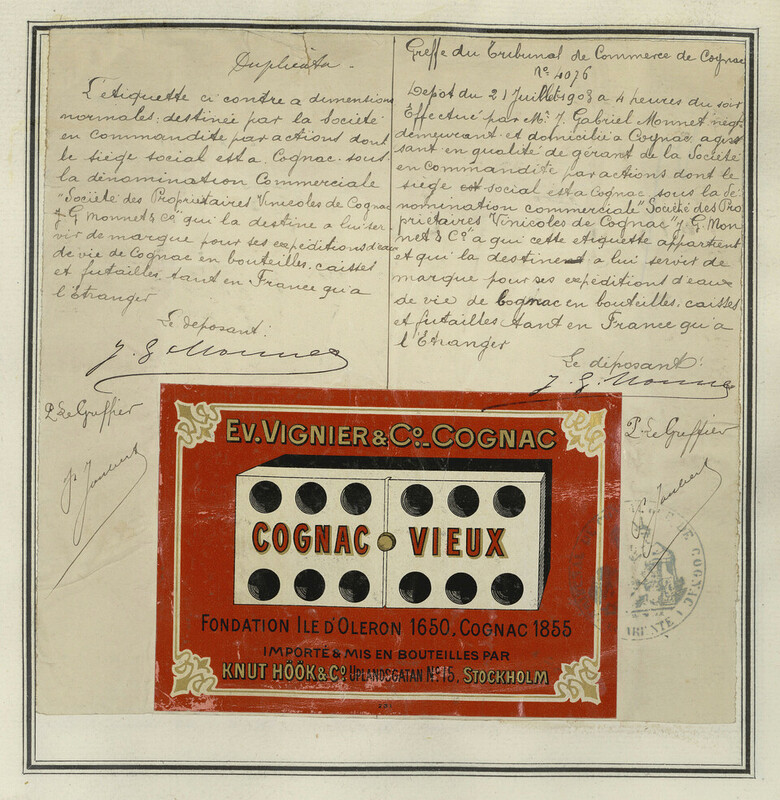 Duplicata -
L'étiquette ci contre a dimensions
normales; destinée par la Société
en commandite par actions dont
le siège social est a Cognac sous
la dénomination Commerciale
"Société des Propriétaires Vinicoles de Cognac
J. G. Monnet & Co" qui la destine a lui ser-
vir de marque pour ses expéditions d'eaux
de vie de Cognac en bouteilles, caisses
et futailles tant en France qu'a
l'Etranger
Le déposant:
J. G. Monnet
P. Le Greffier
P. Joubert
Greffe du Tribunal de Commerce de Cognac
No 4076
Depot du 21 Juillet 1903 a 4 heures du soir
Effectué par Mr J. Gabriel Monnet négt
demeurant et domicilié a Cognac, agis
sant en qualité de gérant de la Société
en Commandite par actions dont le
siège social est a Cognac sous la dé
nomination commerciale "Société des Pro
priétaires Vinicoles de Cognac "J. G. Mon
net & Co" a qui cette étiquette appartient
et qui la destine a lui servir de
marque pour ses expéditions d'eaux
de vie de Cognac en bouteilles, caisses
et futailles tant en France qu'a
l'Etranger
Le déposant:
J. G. Monnet
P. Le Greffier
P. Joubert
DE COGNAC
EV. VIGNIER & Co_ COGNAC
COGNAC VIEUX
FONDATION ILE D'OLERON 1650, COGNAC 1855
IMPORTÉ & MIS EN BOUTEILLES PAR
KNUT HÖÖK & Co UPLANDSGATAN No 15, STOCKHOLM